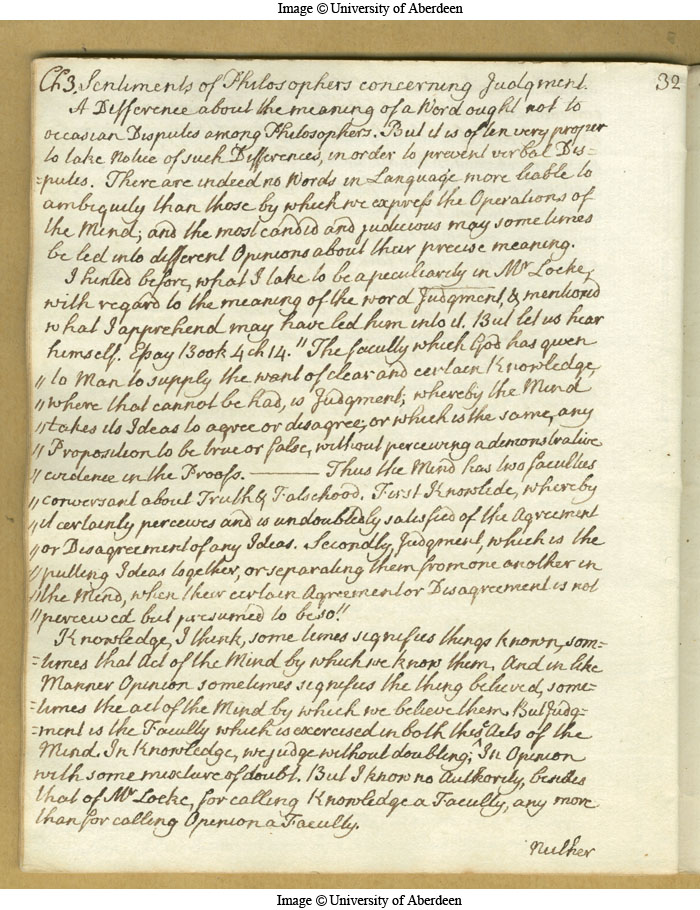 Image © University of Aberdeen
Ch 3. Sentiments of Philosophers concerning Judgment. 32
A Difference about the meaning of a Word ought not to
occasian Disputes among Philosophers. But it is often very proper
to take Notice of such Differences, in order to prevent verbal Dis=
=putes. There are indeed no Words in Language more liable to
ambiguity than those by which we express the Operations of
the Mind; and the most candid and judicious may sometimes
be led into different Opinions about their precise meaning.
I hinted before, what I take to be a peculiarity in Mr Locke,
with regard to the meaning of the word Judgment, & mentioned
what I apprehend may have led him into it. But let us hear
himself. Essay Book 4 ch 14. "The faculty which God has given
"to Man to supply the want of clear and certain Knowledge,
"where that cannot be had, is Judgment; whereby the Mind
"takes its Ideas to agree or disagree, or which is the same, any
"Proposition to be true or false, without perceiving a demonstrative
"evidence in the Proofs. ——— Thus the Mind has two faculties
"conversant about Truth & Falsehood. First Knowlede, whereby
"it certainly perceives and is undoubtedly satisfied of the Agreement
"or Disagreement of any Ideas. Secondly, Judgment, which is the
"putting Ideas together, or separating them from one another in
"the Mind, when their certain Agreement or Disagreement is not
"perceived but presumed to be so."
Knowledge, I think, some times signifies things known, som=
=times that Act of the Mind by which we know them. And in like
Manner Opinion sometimes signifies the thing believed, some=
=times the act of the Mind by which we believe them. But Judg=
=ment is the Faculty which is exercised in both these Acts of the
Mind. In Knowledge, we judge without doubting; In Opinion
with some mixture of doubt. But I know no Authority, besides
that of Mr Locke, for calling Knowledge a Faculty, any more
than for calling Opinion a Faculty.
Neither
Image © University of Aberdeen